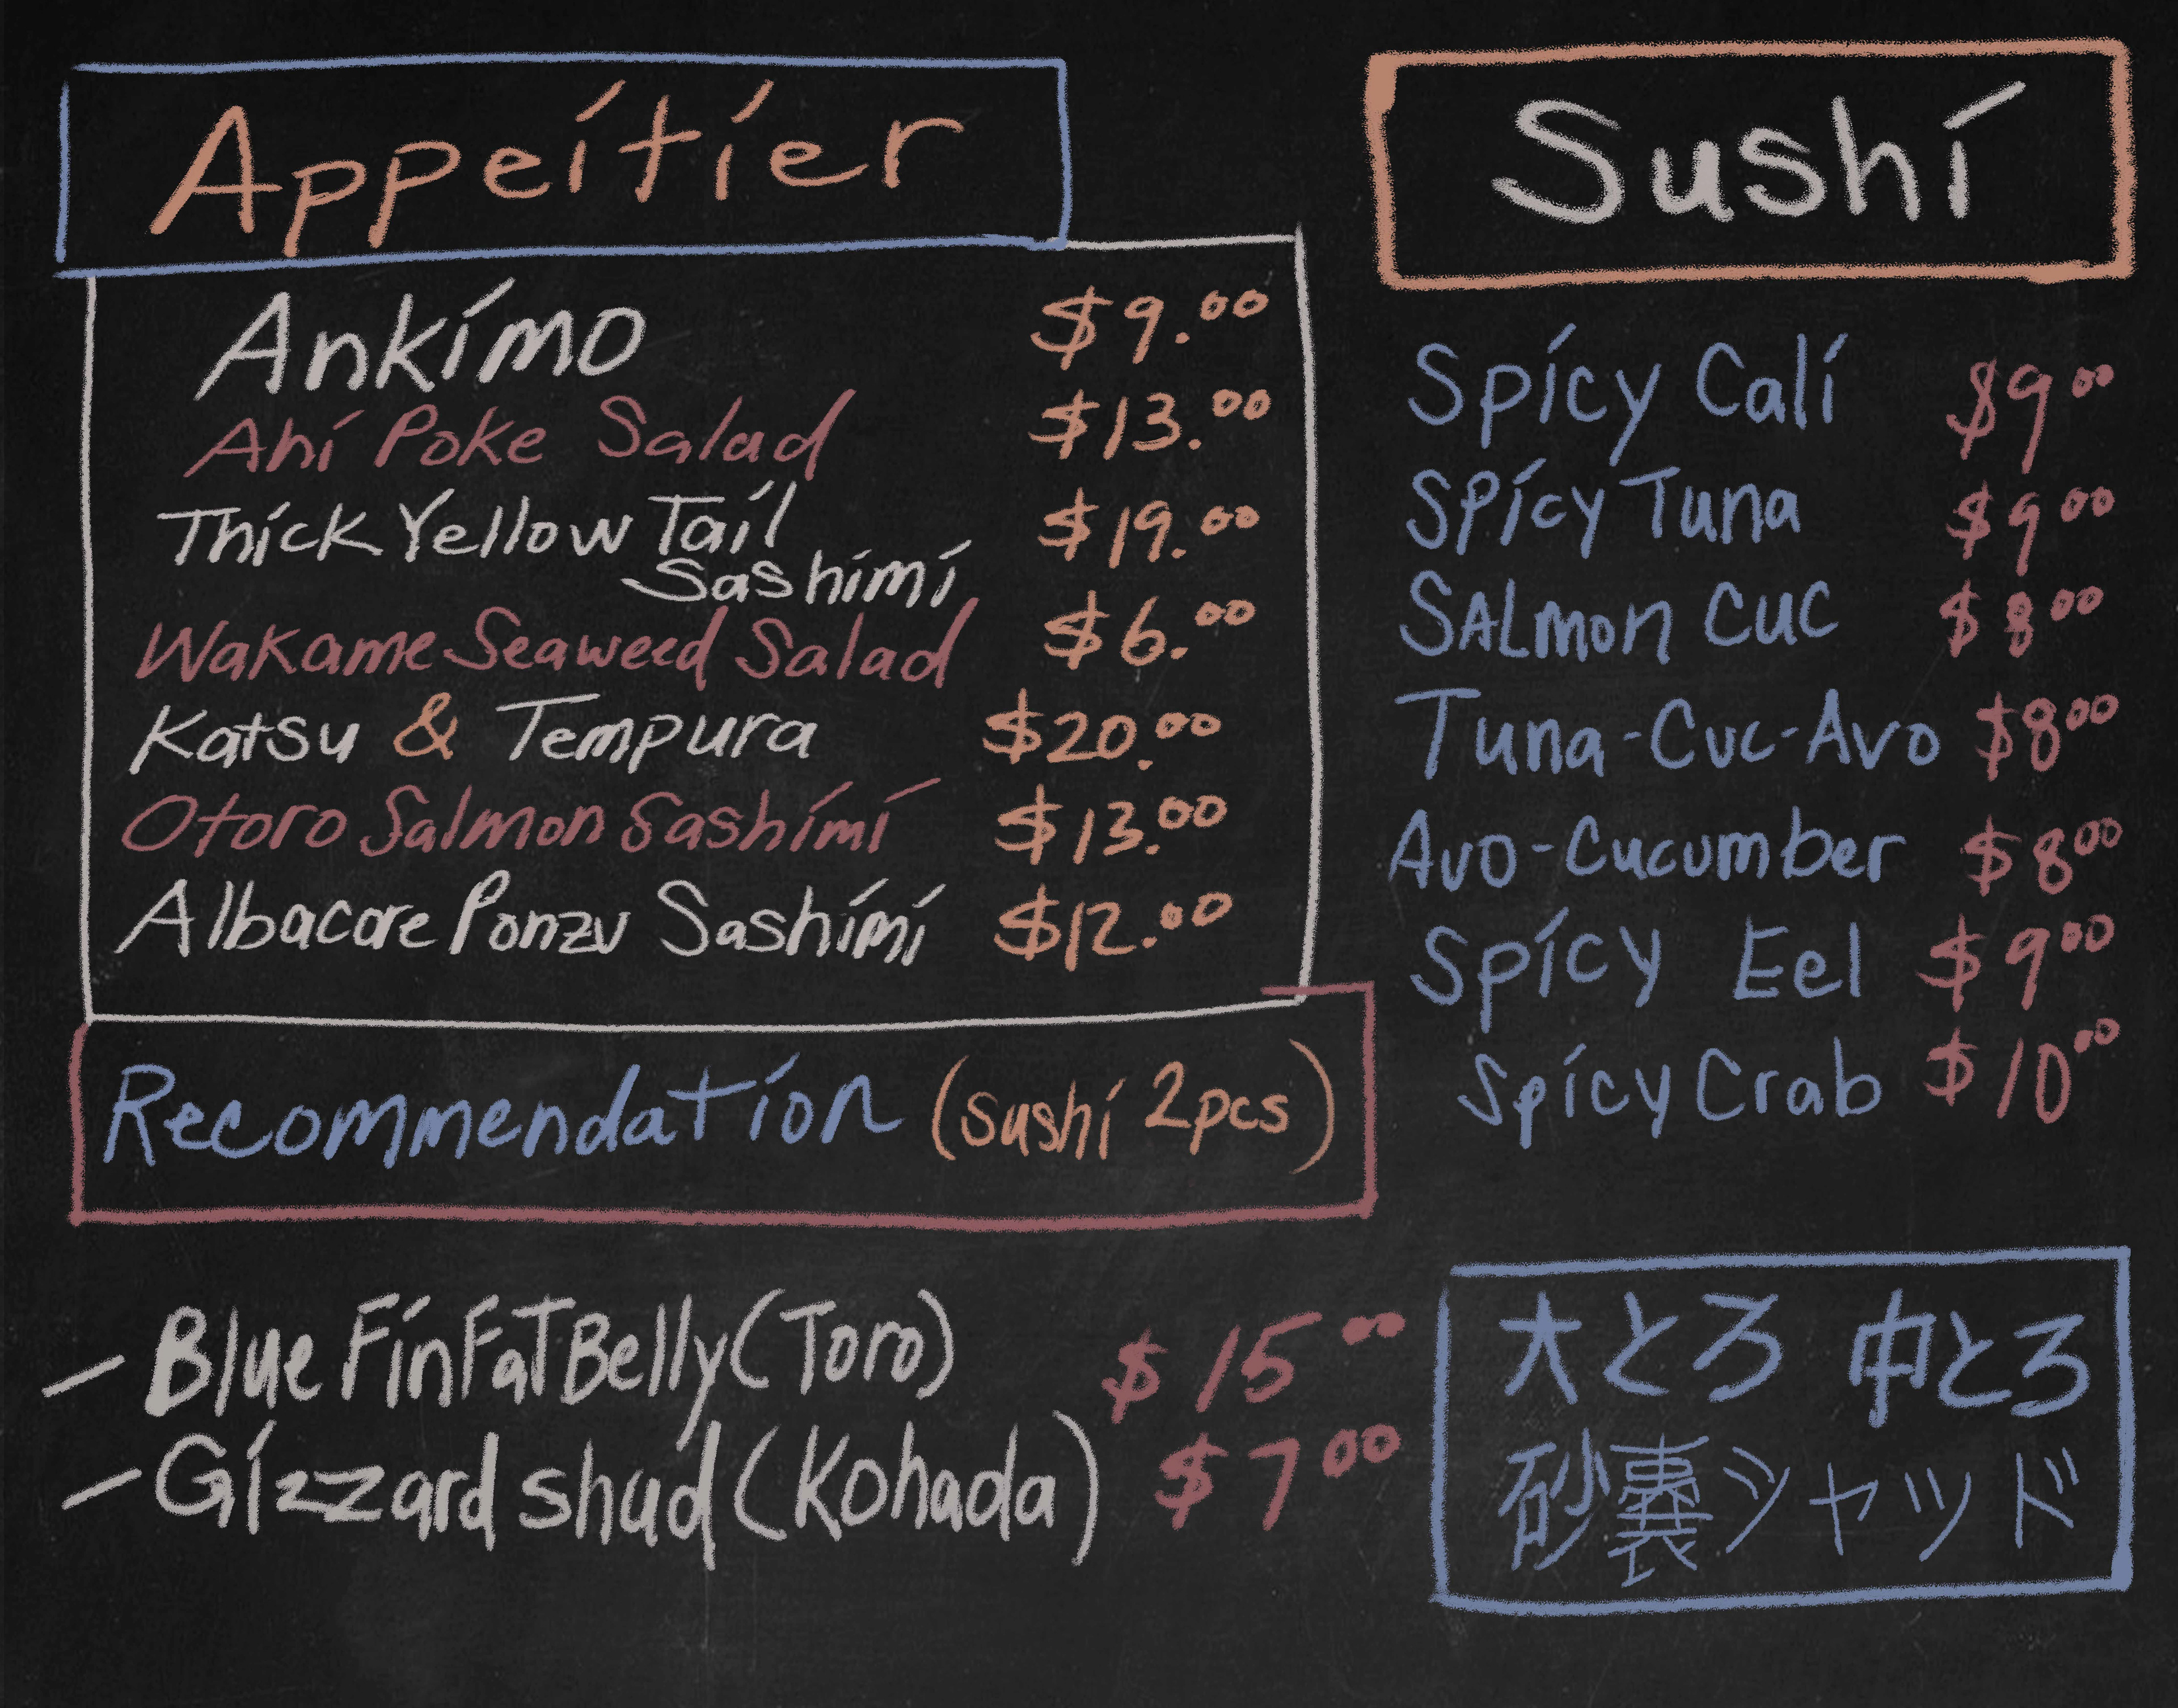 Appeitier
Ankimo $9.00
Ahi Poke Salad $13.00
Thick Yellow Tail $19.00
Sashimi
Wakame Seaweed Salad $6.00
Katsu & Tempura $20.00
Otoro Salmon Sashimi $13.00
Albacore Ponzu Sashimi $12.00
Recommendation (sushi 2pcs)
– Blue Fin Fat Belly (Toro) $15.00
– Gizzard shud (Kohada) $7.00
Sushi
Spicy Cali $9.00
Spicy Tuna $9.00
SALmon CUC $8.00
Tuna-Cuc-Avo $8.00
Avo-Cucumber $8.00
Spicy Eel $9.00
Spicy Crab $10.00
大とろ 中とろ
砂嚢シャッド